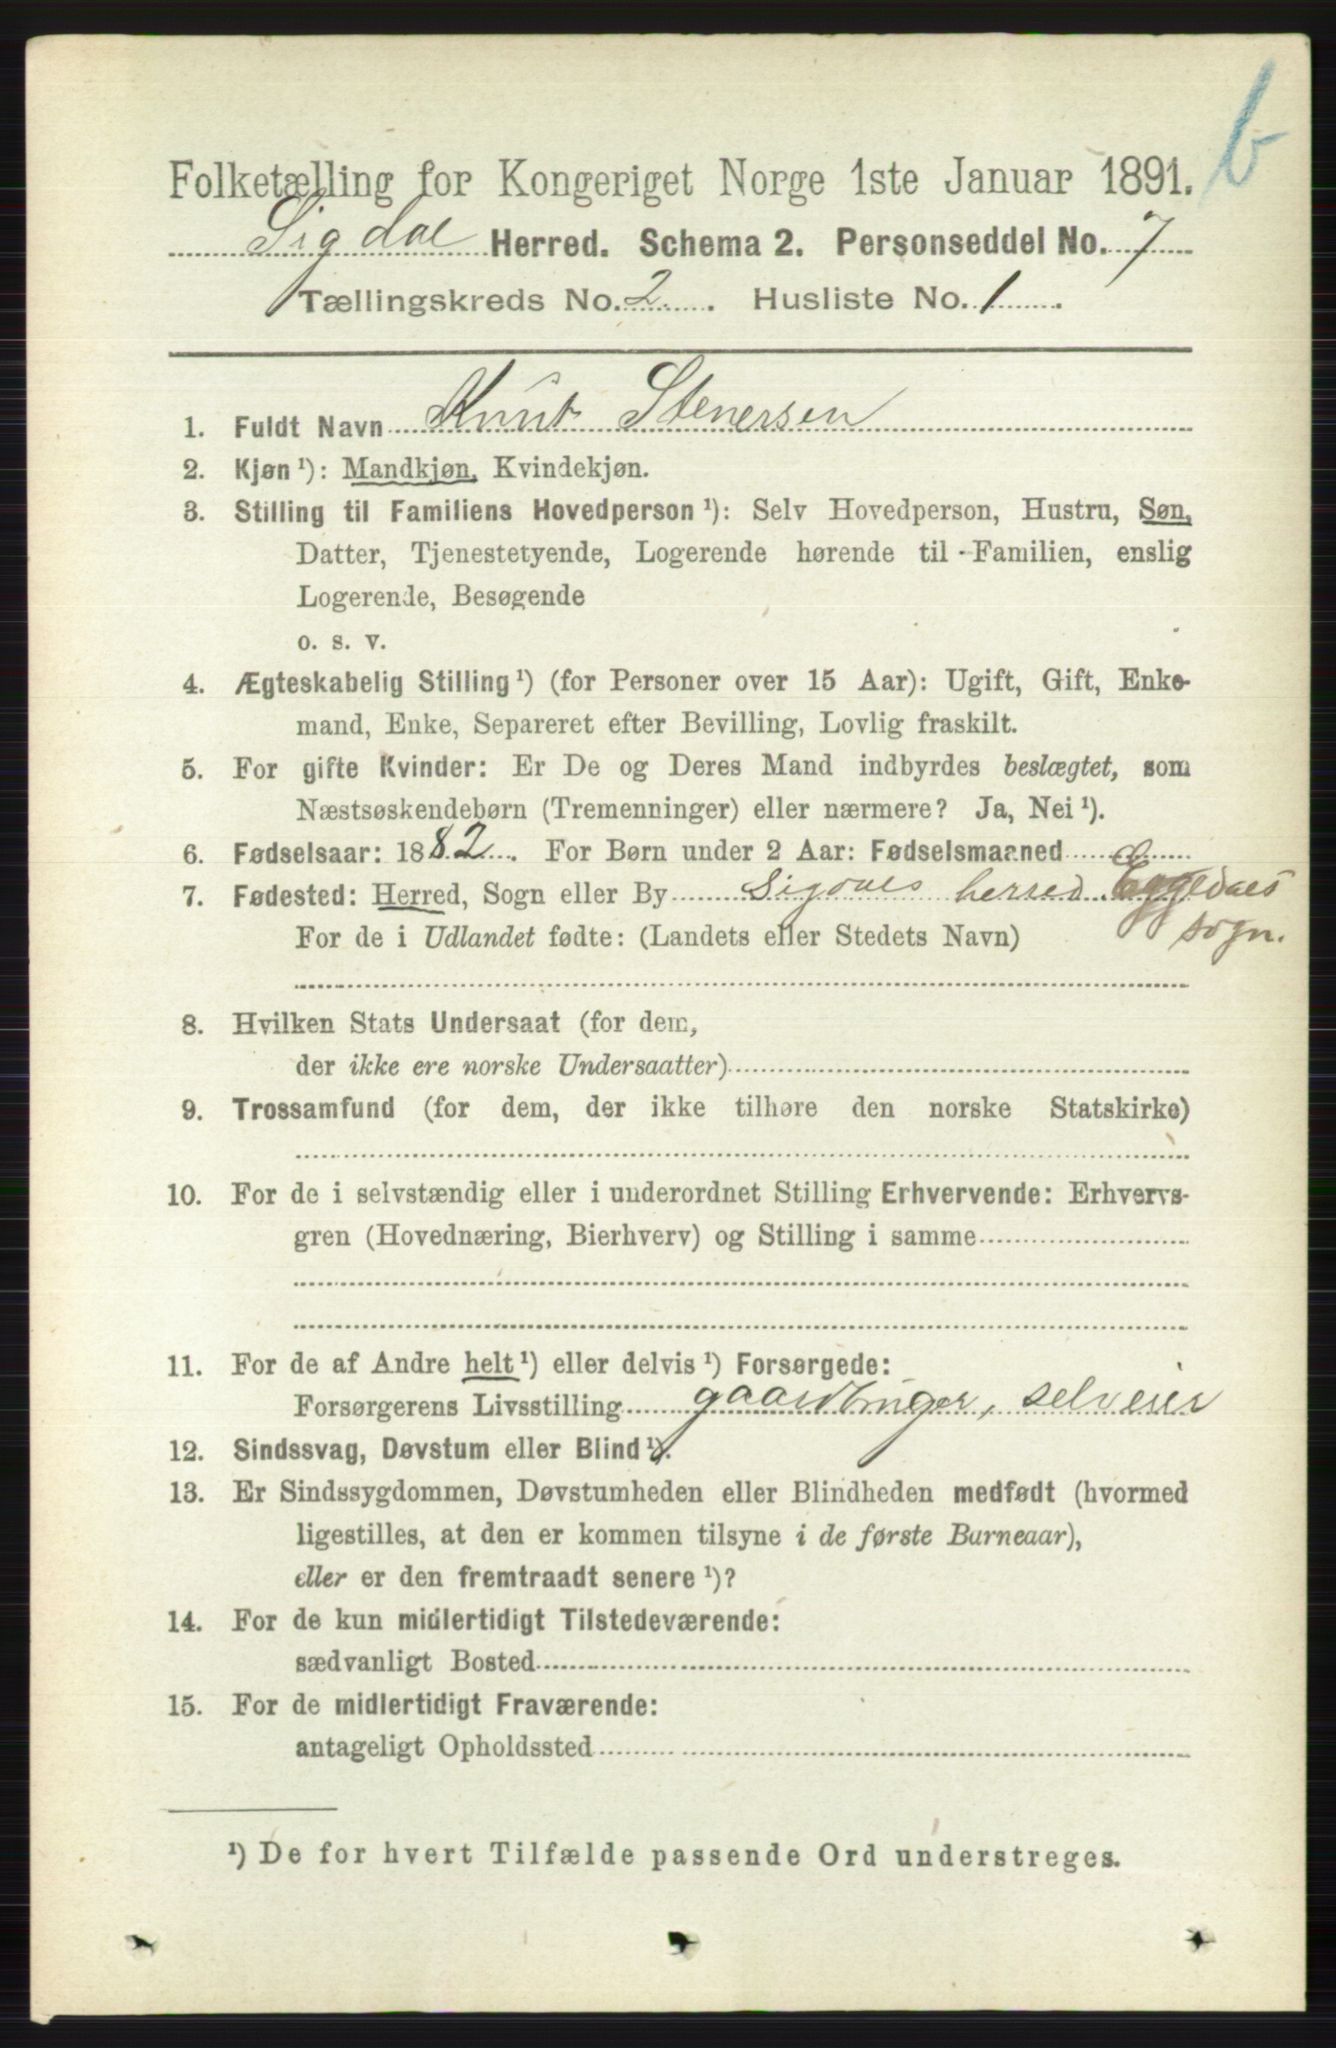 b
Folketælling for Kongeriget Norge 1ste Januar 1891.
Sigdal Herred. Schema 2. Personseddel No. 7
Tællingskreds No. 2. Husliste No. 1.
1. Fuldt Navn Knut Stenersen
2. Kjøn ¹): Mandkjøn, Kvindekjøn.
3. Stilling til Familiens Hovedperson ¹): Selv Hovedperson, Hustru, Søn,
Datter, Tjenestetyende, Logerende hørende til Familien, enslig
Logerende, Besøgende
o. s. v.
4. Ægteskabelig Stilling ¹) (for Personer over 15 Aar): Ugift, Gift, Enke-
mand, Enke, Separeret efter Bevilling, Lovlig fraskilt.
5. For gifte Kvinder: Er De og Deres Mand indbyrdes beslægtet, som
Næstsøskendebørn (Tremenninger) eller nærmere? Ja, Nei ¹).
6. Fødselsaar: 1882. For Børn under 2 Aar: Fødselsmaaned
7. Fødested: Herred, Sogn eller By Sigdals herred Eggedals
sogn.
For de i Udlandet fødte: (Landets eller Stedets Navn)
8. Hvilken Stats Undersaat (for dem,
der ikke ere norske Undersaatter)
9. Trossamfund (for dem, der ikke tilhøre den norske Statskirke)
10. For de i selvstændig eller i underordnet Stilling Erhvervende: Erhvervs-
gren (Hovednæring, Bierhverv) og Stilling i samme
11. For de af Andre helt ¹) eller delvis ¹) Forsørgede:
Forsørgerens Livsstilling gaardbruger, selveier
12. Sindssvag, Døvstum eller Blind ¹).
13. Er Sindssygdommen, Døvstumheden eller Blindheden medfødt (hvormed
ligestilles, at den er kommen tilsyne i de første Barneaar),
eller er den fremtraadt senere ¹)?
14. For de kun midlertidigt Tilstedeværende:
sædvanligt Bosted
15. For de midlertidigt Fraværende:
antageligt Opholdssted
¹) De for hvert Tilfælde passende Ord understreges.